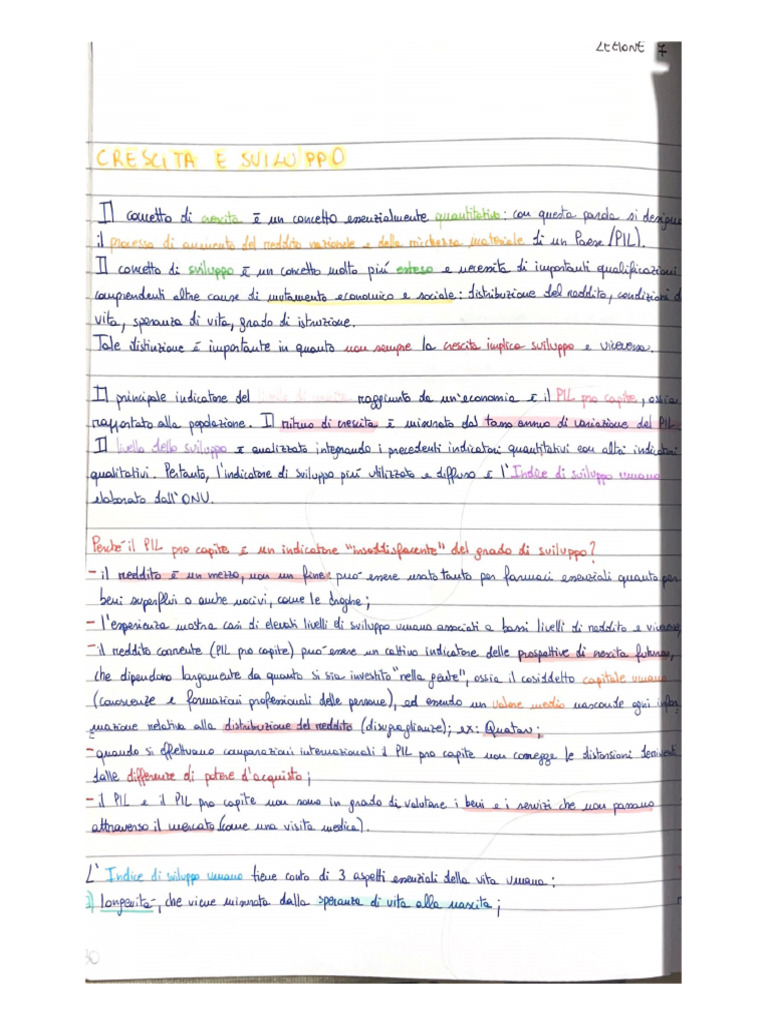 LEZIONE 7
CRESCITA E SVILUPPO
Il concetto di crescita è un concetto essenzialmente quantitativo: con questa parola si designa
il processo di aumento del reddito nazionale e della ricchezza materiale di un Paese (PIL).
Il concetto di sviluppo è un concetto molto più esteso e necessita di importanti qualificazioni
comprendenti altre cause di mutamento economico e sociale: distribuzione del reddito, condizioni di
vita, speranza di vita, grado di istruzione.
Tale distinzione è importante in quanto non sempre la crescita implica sviluppo e viceversa.
Il principale indicatore del livello di crescita raggiunto da un'economia è il PIL pro capite, ossia
rapportato alla popolazione. Il ritmo di crescita è misurato dal tasso annuo di variazione del PIL.
Il livello dello sviluppo è analizzato integrando i precedenti indicatori quantitativi con altri indicatori
qualitativi. Pertanto, l'indicatore di sviluppo più utilizzato e diffuso è l'Indice di sviluppo umano
elaborato dall'ONU.
Perché il PIL pro capite è un indicatore "insoddisfacente" del grado di sviluppo?
- il reddito è un mezzo, non un fine: può essere usato tanto per farmaci essenziali quanto per
beni superflui o anche nocivi, come le droghe;
- l'esperienza mostra casi di elevati livelli di sviluppo umano associati a bassi livelli di reddito e viceversa;
- il reddito corrente (PIL pro capite) può essere un cattivo indicatore delle prospettive di crescita future,
che dipendono largamente da quanto si sia investito "nella gente", ossia il cosiddetto capitale umano
(conoscenze e formazioni professionali delle persone), ed essendo un valore medio nasconde ogni infor
mazione relativa alla distribuzione del reddito (disuguaglianze); ex: Quatar;
- quando si effettuano comparazioni internazionali il PIL pro capite non corregge le distorsioni derivanti
dalle differenze di potere d'acquisto;
- il PIL e il PIL pro capite non sono in grado di valutare i beni e i servizi che non passano
attraverso il mercato (come una visita medica).
L'Indice di sviluppo umano tiene conto di 3 aspetti essenziali della vita umana:
1) longevità, che viene misurata dalla speranza di vita alla nascita;
30